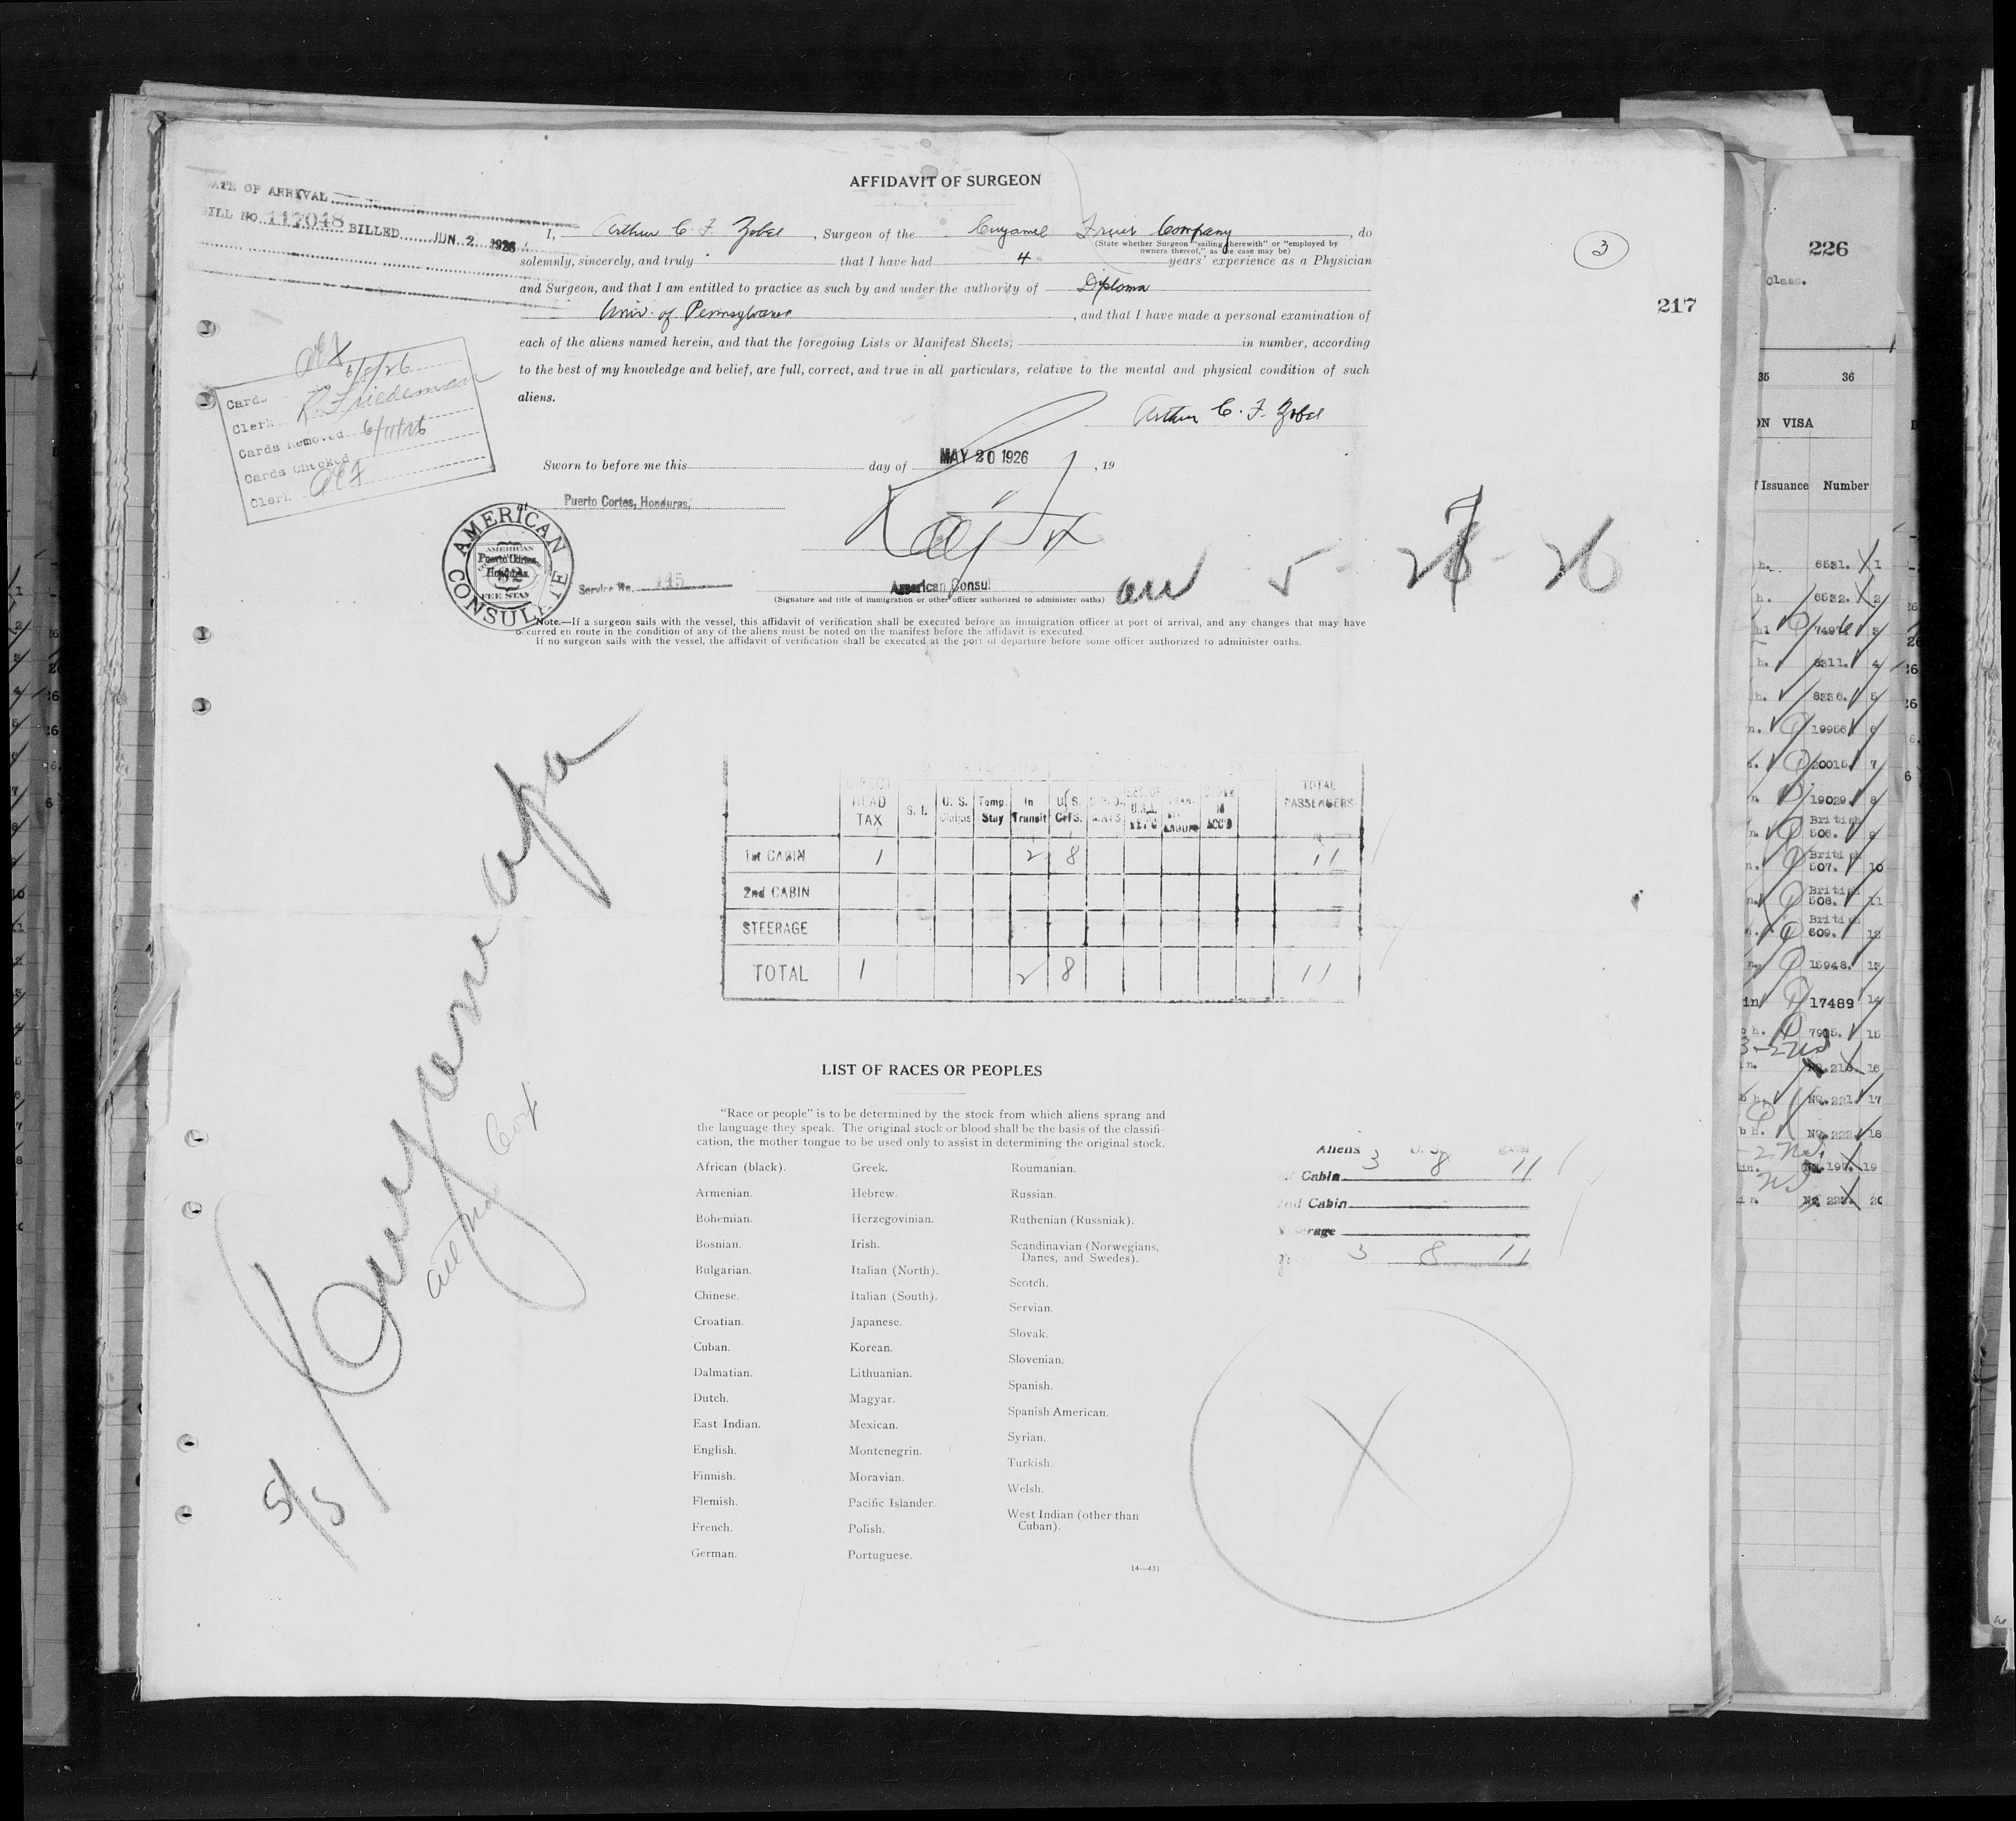 AFFIDAVIT OF SURGEON
DATE OF ARRIVAL
BILL NO. 117048 BILLED JUN 2 1926
I, Arthur C. F. Zobel, Surgeon of the Cuyamel Fruit Company, do
(State whether Surgeon "sailing therewith" or "employed by
owners thereof," as the case may be)
solemnly, sincerely, and truly that I have had 4 years' experience as a Physician
and Surgeon, and that I am entitled to practice as such by and under the authority of Diploma
Univ. of Pennsylvania, and that I have made a personal examination of
each of the aliens named herein, and that the foregoing Lists or Manifest Sheets, in number, according
to the best of my knowledge and belief, are full, correct, and true in all particulars, relative to the mental and physical condition of such
aliens.
Arthur C. F. Zobel
3
217
Cards 6/8/26
Clerk R. Friedeman
Cards Removed 6/11/26
Cards Checked
Clerk
Sworn to before me this day of MAY 20 1926, 19
at Puerto Cortes, Honduras,
AMERICAN CONSULATE
AMERICAN
Puerto Cortes,
Honduras.
FEE STAMP
Service No. 145
American Consul
(Signature and title of immigration or other officer authorized to administer oaths)
5-26-26
Note.—If a surgeon sails with the vessel, this affidavit of verification shall be executed before an immigration officer at port of arrival, and any changes that may have
occurred en route in the condition of any of the aliens must be noted on the manifest before the affidavit is executed.
If no surgeon sails with the vessel, the affidavit of verification shall be executed at the port of departure before some officer authorized to administer oaths.
DIRECT HEAD TAX S. I. U. S. Citizens Temp. Stay In Transit U. S. Citfs. UNDER 16 ACC'D TOTAL PASSENGERS
1st CABIN 1 2 8 11
2nd CABIN
STEERAGE
TOTAL 1 2 8 11
LIST OF RACES OR PEOPLES
"Race or people" is to be determined by the stock from which aliens sprang and
the language they speak. The original stock or blood shall be the basis of the classifi-
cation, the mother tongue to be used only to assist in determining the original stock.
African (black).
Armenian.
Bohemian.
Bosnian.
Bulgarian.
Chinese.
Croatian.
Cuban.
Dalmatian.
Dutch.
East Indian.
English.
Finnish.
Flemish.
French.
German.
Greek.
Hebrew.
Herzegovinian.
Irish.
Italian (North).
Italian (South).
Japanese.
Korean.
Lithuanian.
Magyar.
Mexican.
Montenegrin.
Moravian.
Pacific Islander.
Polish.
Portuguese.
Roumanian.
Russian.
Ruthenian (Russniak).
Scandinavian (Norwegians,
Danes, and Swedes).
Scotch.
Servian.
Slovak.
Slovenian.
Spanish.
Spanish American.
Syrian.
Turkish.
Welsh.
West Indian (other than
Cuban).
14—431
Aliens
1st Cabin 3 8 11
2nd Cabin
Steerage
3 8 11
S/S Cuyamapa
226
Class.
35 36
ON VISA
f Issuance Number
6531. 1
6532. 2
7497. 3
8311. 4
8336. 5
19956 6
20015. 7
19029. 8
British
506. 9
British
507. 10
British
508. 11
British
509. 12
15948. 13
17489 14
7905. 15
No. 218. 16
No. 221. 17
No. 222. 18
No. 197. 19
No. 223. 20